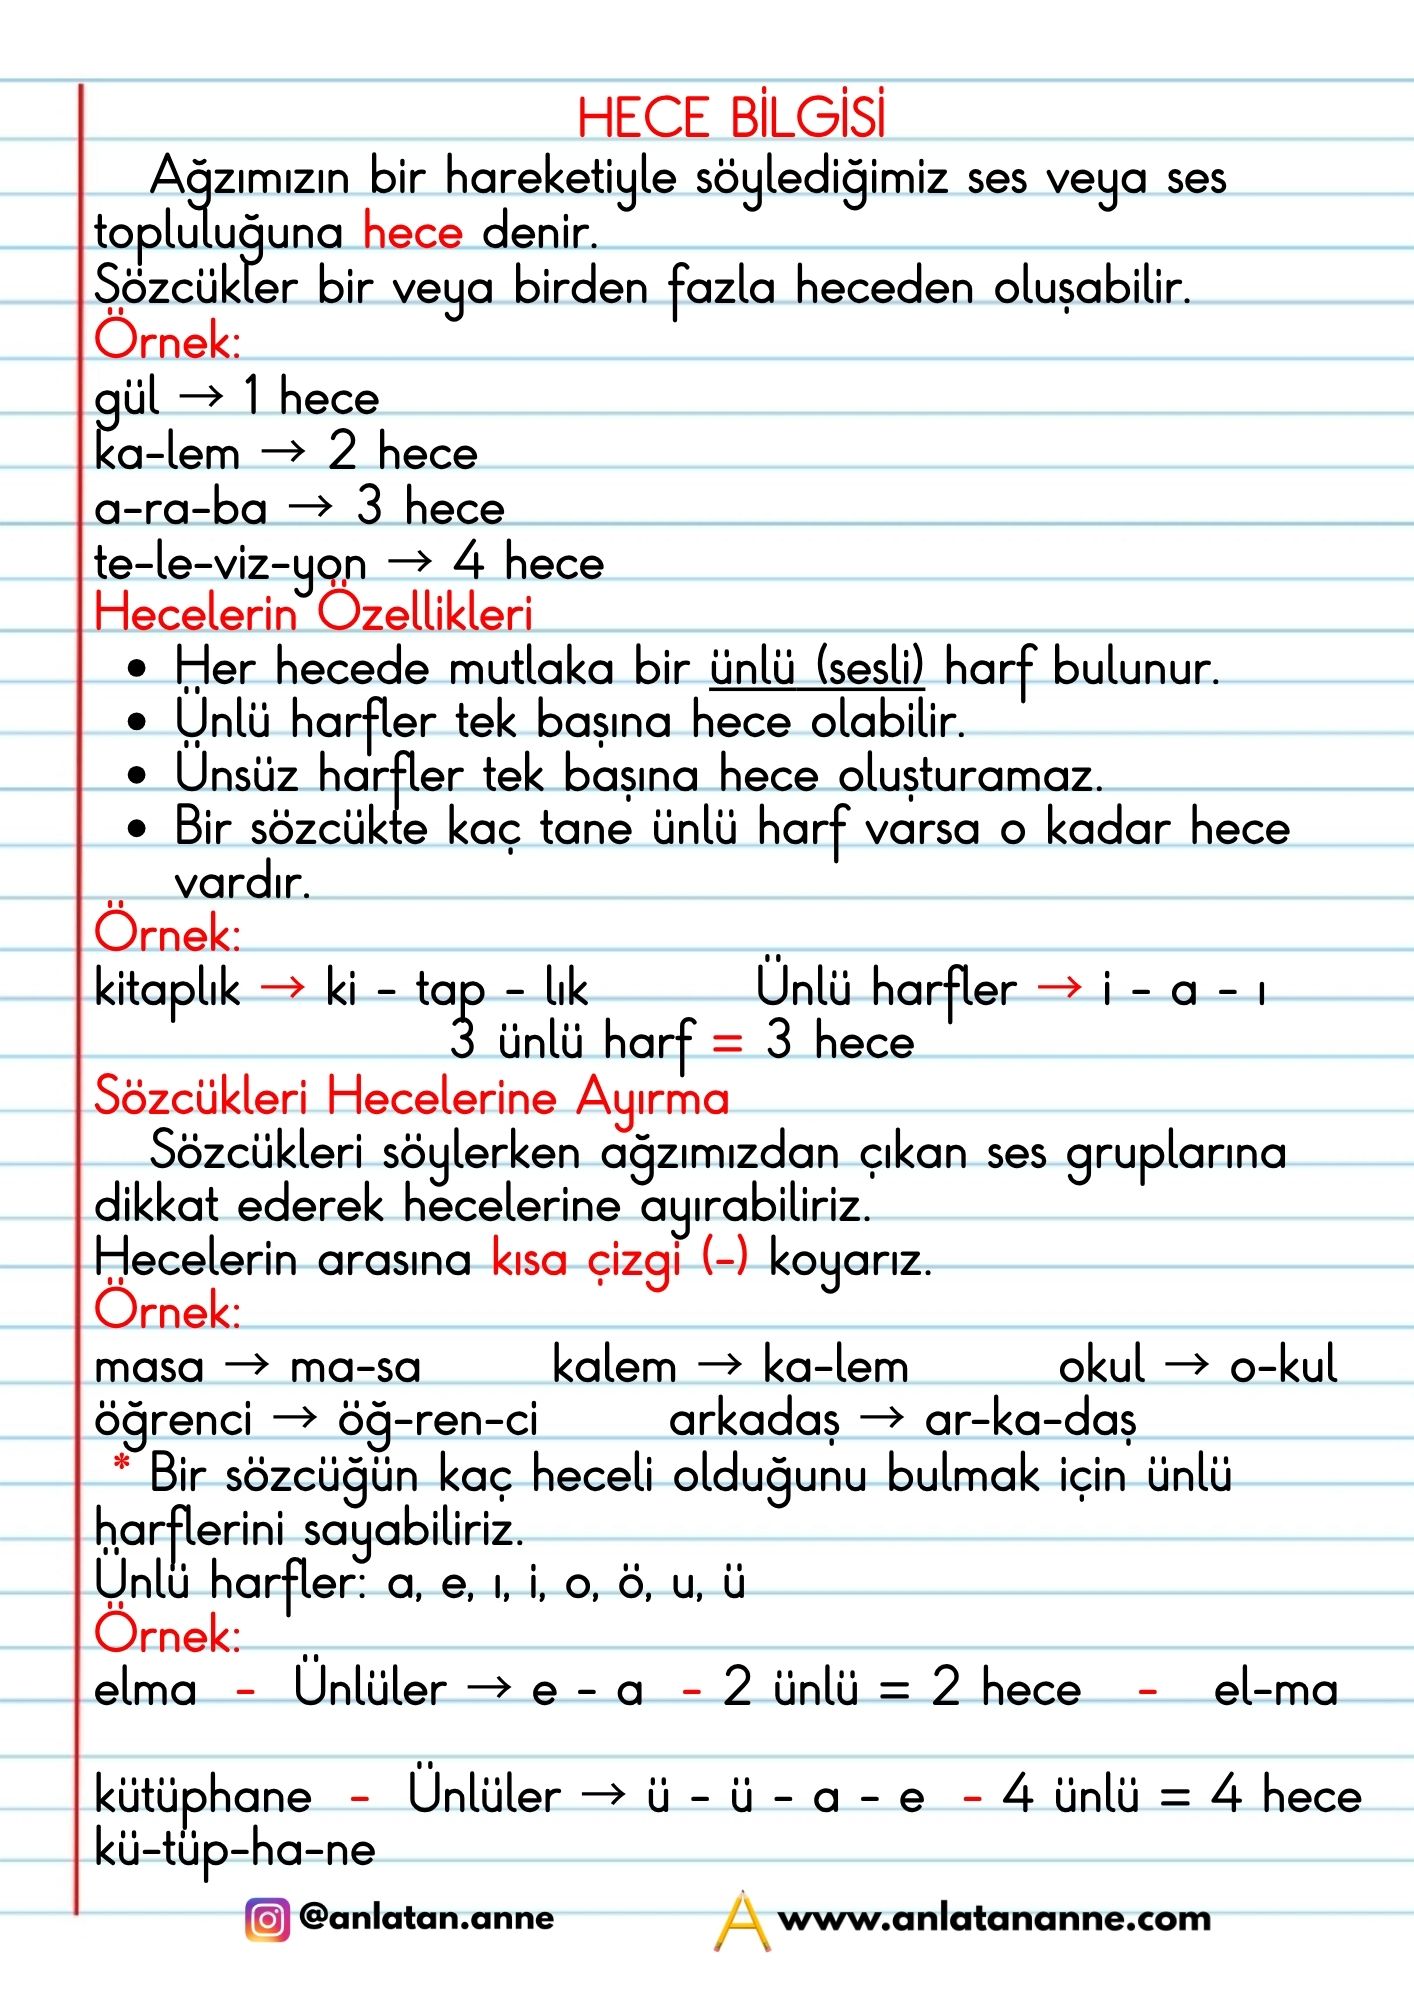 HECE BİLGİSİ
Ağzımızın bir hareketiyle söylediğimiz ses veya ses
topluluğuna hece denir.
Sözcükler bir veya birden fazla heceden oluşabilir.
Örnek:
gül → 1 hece
ka-lem → 2 hece
a-ra-ba → 3 hece
te-le-viz-yon → 4 hece
Hecelerin Özellikleri
• Her hecede mutlaka bir ünlü (sesli) harf bulunur.
• Ünlü harfler tek başına hece olabilir.
• Ünsüz harfler tek başına hece oluşturamaz.
• Bir sözcükte kaç tane ünlü harf varsa o kadar hece
vardır.
Örnek:
kitaplık → ki - tap - lık Ünlü harfler → i - a - ı
3 ünlü harf = 3 hece
Sözcükleri Hecelerine Ayırma
Sözcükleri söylerken ağzımızdan çıkan ses gruplarına
dikkat ederek hecelerine ayırabiliriz.
Hecelerin arasına kısa çizgi (-) koyarız.
Örnek:
masa → ma-sa kalem → ka-lem okul → o-kul
öğrenci → öğ-ren-ci arkadaş → ar-ka-daş
* Bir sözcüğün kaç heceli olduğunu bulmak için ünlü
harflerini sayabiliriz.
Ünlü harfler: a, e, ı, i, o, ö, u, ü
Örnek:
elma - Ünlüler → e - a - 2 ünlü = 2 hece - el-ma
kütüphane - Ünlüler → ü - ü - a - e - 4 ünlü = 4 hece
kü-tüp-ha-ne
@anlatan.anne www.anlatananne.com